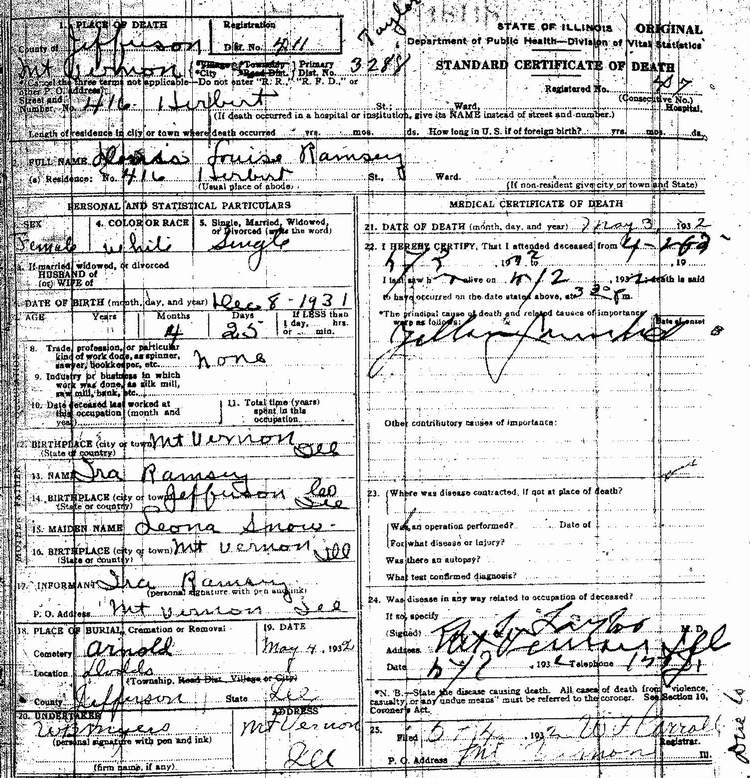 1. PLACE OF DEATH
Registration
County of Jefferson
Dist. No. 411
Mt Vernon
*Village *Township *City *Road Dist.
Primary Dist. No. 3288
Taylor
(*Cancel the three terms not applicable—Do not enter "R. R.," "R. F. D.," or other P. O. address)
Street and Number, No. 416 Herbert St.; Ward, Hospital.
(If death occurred in a hospital or institution, give its NAME instead of street and number.)
STATE OF ILLINOIS ORIGINAL
Department of Public Health—Division of Vital Statistics
STANDARD CERTIFICATE OF DEATH
Registered No.
(Consecutive No.)
Length of residence in city or town where death occurred yrs. mos. ds. How long in U. S. if of foreign birth? yrs. mos. ds.
FULL NAME Louise Ramsey
(a) Residence: No. 416 Herbert St., Ward.
(Usual place of abode)
(If non-resident give city or town and State)
PERSONAL AND STATISTICAL PARTICULARS
SEX Female
4. COLOR OR RACE white
5. Single, Married, Widowed, or Divorced (write the word) Single
If married, widowed, or divorced
HUSBAND OF
(or) WIFE OF
DATE OF BIRTH (month, day, and year) Dec 8-1931
AGE Years Months Days If LESS than 1 day, hrs. or min.
4 25
8. Trade, profession, or particular kind of work done, as spinner, sawyer, bookkeeper, etc. none
9. Industry or business in which work was done, as silk mill, saw mill, bank, etc.
10. Date deceased last worked at this occupation (month and year)
11. Total time (years) spent in this occupation.
12. BIRTHPLACE (city or town) Mt Vernon
(State or country) Ill
FATHER
13. NAME Ira Ramsey
14. BIRTHPLACE (city or town) Jefferson Co
(State or country) Ill
MOTHER
15. MAIDEN NAME Leona Snow
16. BIRTHPLACE (city or town) Mt Vernon
(State or country) Ill
17. INFORMANT Ira Ramsey
(personal signature with pen and ink)
P. O. Address Mt Vernon Ill
18. PLACE OF BURIAL, Cremation or Removal
Cemetery Arnold
Location Dodds
(Township, Road Dist. Village or City)
County Jefferson State Ill
19. DATE
May 4, 1932
20. UNDERTAKER
Myers
(personal signature with pen and ink)
(firm name, if any)
ADDRESS
Mt Vernon
Ill
MEDICAL CERTIFICATE OF DEATH
21. DATE OF DEATH (month, day, and year) May 3 1932
22. I HEREBY CERTIFY, That I attended deceased from
I last saw h alive on 1932; death is said
to have occurred on the date stated above, at m.
*The principal cause of death and related causes of importance were as follows:
Date of onset
Other contributory causes of importance:
23. (Where was disease contracted, if not at place of death?
Was an operation performed? Date of
For what disease or injury?
Was there an autopsy?
What test confirmed diagnosis?
24. Was disease in any way related to occupation of deceased?
If so, specify
(Signed) Taylor M. D.
Address Mt Vernon Ill
Date 1932 Telephone
*N. B.—State the disease causing death. All cases of death from "violence, casualty, or any undue means" must be referred to the coroner. See Section 10, Coroner's Act.
25. Filed 1932 Carroll
Registrar.
P. O. Address Mt Vernon Ill.